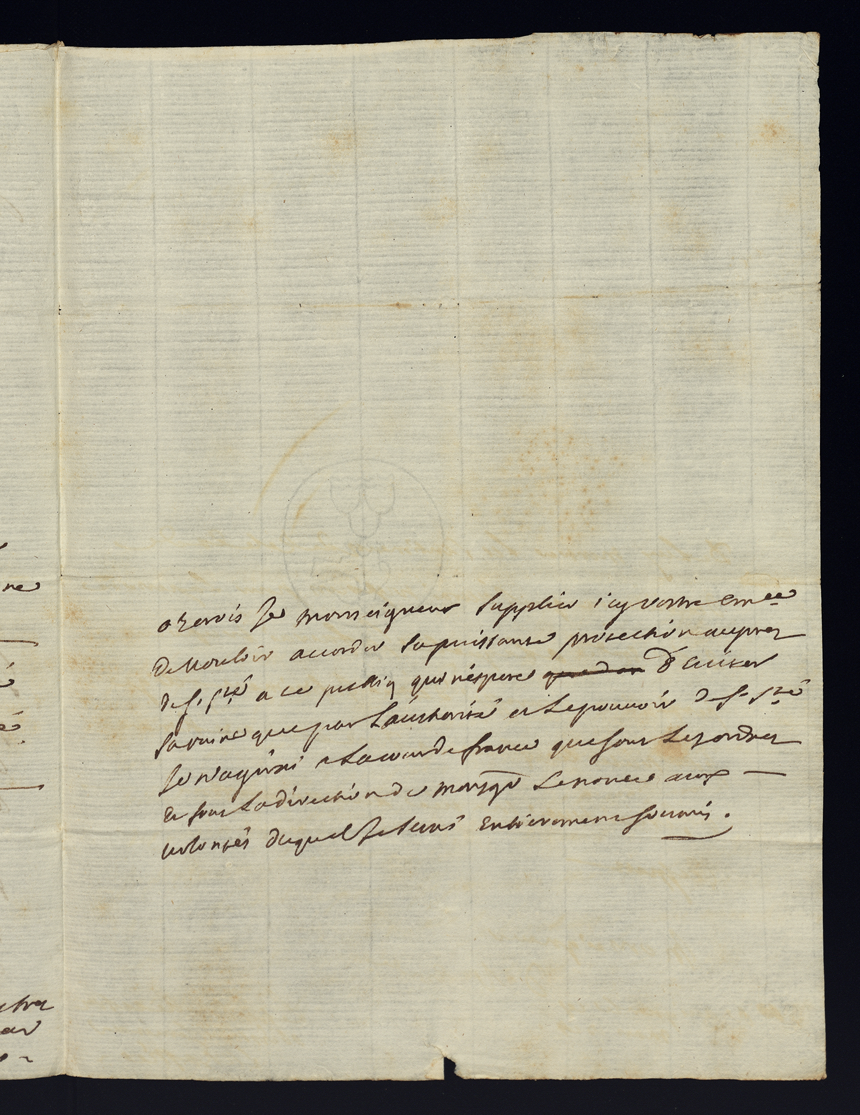 oserois je monseigneur supplier icy vostre Em.ce
de vouloir accorder sa puissante protection aupres
de s. s.té a ce public qui n'espere d'eviter
sa ruine que par l'authorité et le pouvoir de s. s.té
je n'agirai a la cour de france que sous les ordres
et sous la direction de monsgr le nonce aux
volontés duquel je serai entierement soumis.